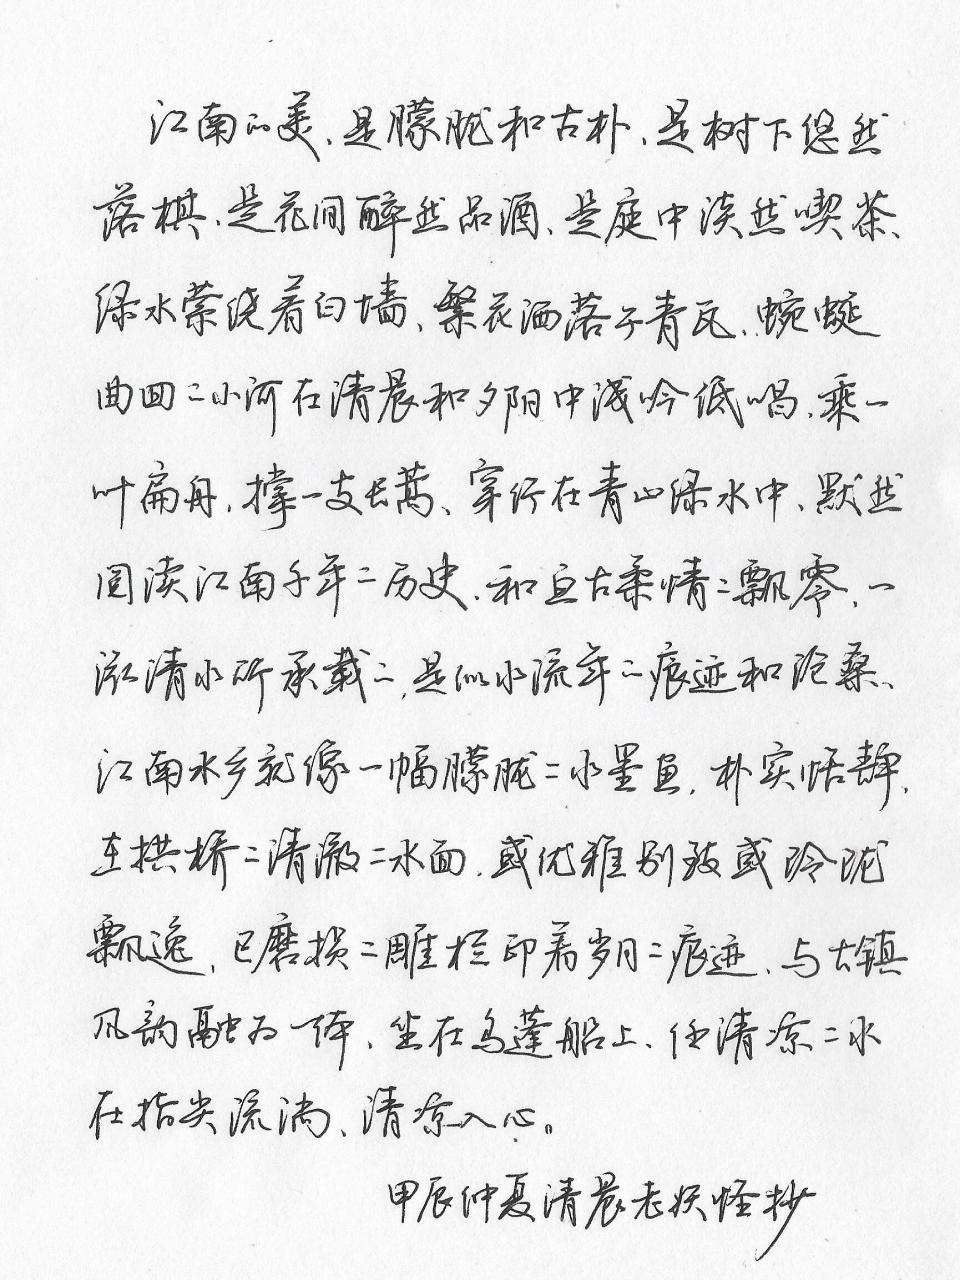 江南的美、是朦胧和古朴、是树下悠然
落棋、是花间醉然品酒、是庭中淡然喫茶、
绿水萦绕着白墙、繁花洒落于青瓦、蜿蜒
曲回的小河在清晨和夕阳中浅吟低唱、乘一
叶扁舟、撑一支长蒿、穿行在青山绿水中、默然
阅读江南千年的历史、和亘古柔情的飘零、一
泓清水所承载的、是似水流年的痕迹和沧桑、
江南水乡就像一幅朦胧的水墨画、朴实恬静、
在拱桥的清澈的水面、或优雅别致或玲珑
飘逸、已磨损的雕栏印着岁月的痕迹、与古镇
风韵融为一体、坐在乌蓬船上、任清凉的水
在指尖流淌、清凉入心。
甲辰仲夏清晨老妖怪抄